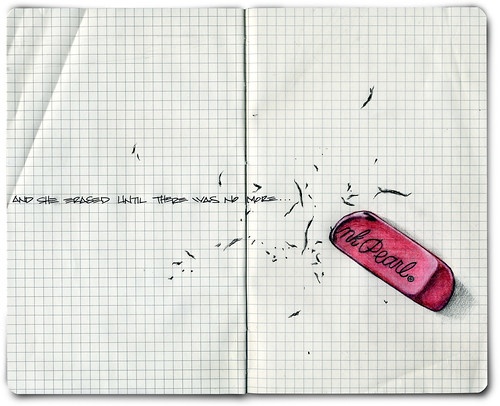 AND SHE ERASED UNTIL THERE WAS NO MORE...
nk Pearl®